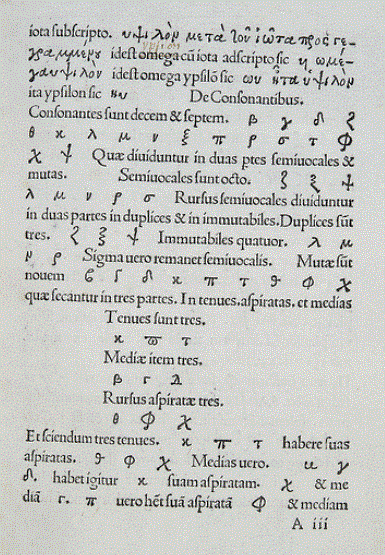 iota subscripto. υψιλὸν μετὰ τοῦ ἰῶτα προς γε-
γραμμένου idest omega cū iota adscripto sic ῃ ωμέ-
γα υψιλὸν idest omega ypsilō sic ωυ ῆτα υψιλὸν
ita ypsilon sic ηυ De Consonantibus.
Consonantes sunt decem & septem. β γ δ ζ
θ κ λ μ ν ξ π ρ σ τ φ
χ ψ Quæ diuiduntur in duas ptes semiuocales &
mutas. Semiuocales sunt octo. ζ ξ ψ
λ μ ν ρ σ Rursus semiuocales diuiduntur
in duas partes in duplices & in immutabiles. Duplices sūt
tres. ζ ξ ψ Immutabiles quatuor. λ μ
ν ρ Sigma uero remanet semiuocalis. Mutæ sūt
nouem β γ δ κ π τ θ φ χ
quæ secantur in tres partes. In tenues. aspiratas. et medias
Tenues sunt tres.
κ π τ
Mediæ item tres.
β γ δ
Rursus aspiratæ tres.
θ φ χ
Et sciendum tres tenues. κ π τ habere suas
aspiratas. θ φ χ Medias uero. β γ
δ. habet igitur κ suam aspiratam. χ & me
diā γ. π uero hēt suā aspiratā φ & mediam
A iii